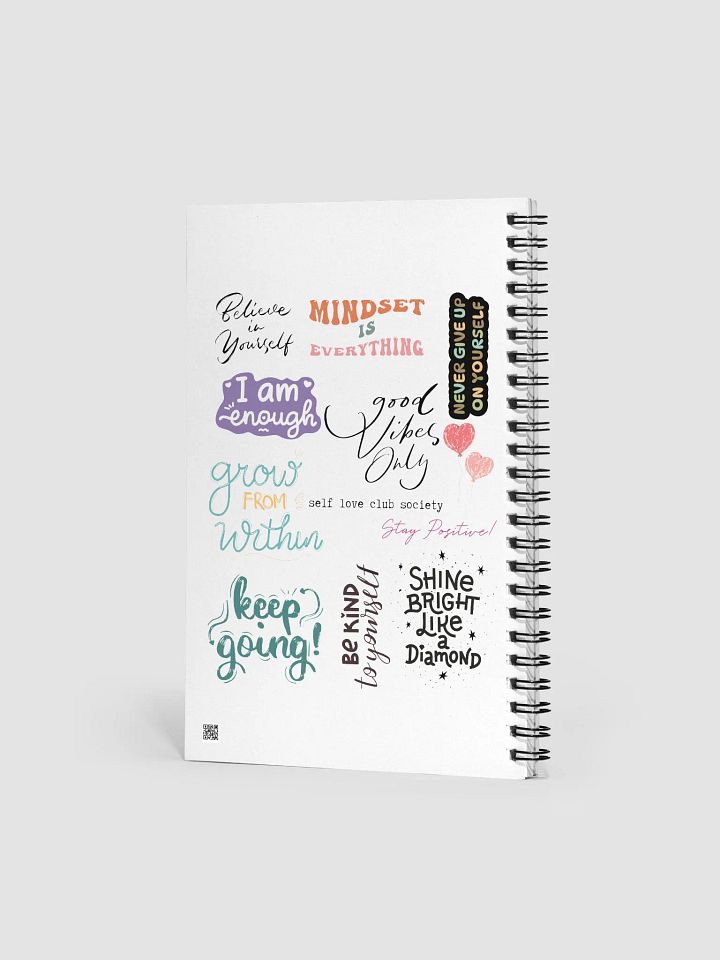 Believe
in
Yourself
MINDSET
IS
EVERYTHING
NEVER GIVE UP
ON YOURSELF
I am
enough
good
Vibes
Only
grow
FROM
within
self love club society
Stay Positive!
keep
going!
BE KIND
to yourself
SHINE
BRIGHT
LIKE
a
DIAMOND